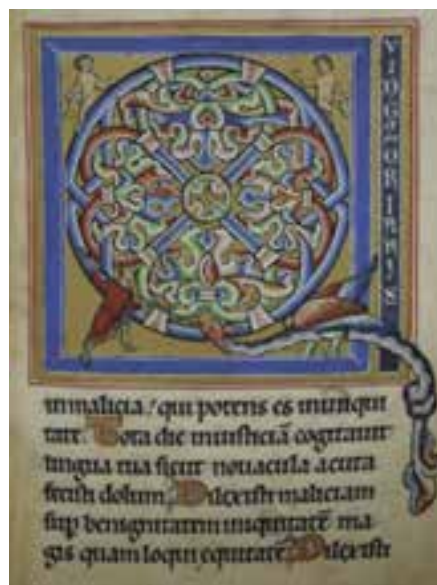 Q
VIDGLORIARIS
in malicia? qui potens es in iniqui
tate. Tota die iniusticiā cogitauit
lingua tua sicut nouacula acuta
fecisti dolum. Dilexisti maliciam
sup benignitatem iniquitatē ma
gis quam loqui equitatē. Dilexisti